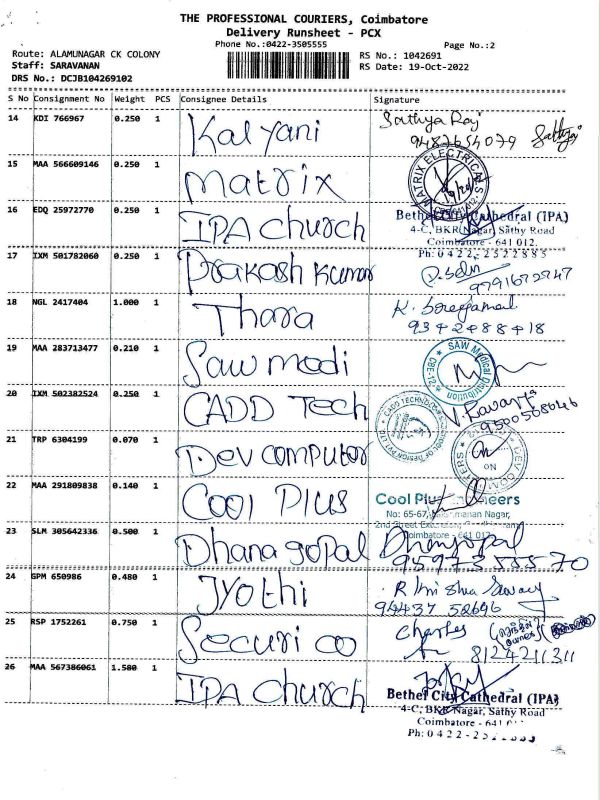 THE PROFESSIONAL COURIERS, Coimbatore
Delivery Runsheet - PCX
Phone No.:0422-3505555
Page No.:2
Route: ALAMUNAGAR CK COLONY
RS No.: 1042691
Staff: SARAVANAN
RS Date: 19-Oct-2022
DRS No.: DCJB104269102
S No Consignment No Weight PCS Consignee Details Signature
14 KDI 766967 0.250 1 Kalyani
Sathya Raj
9487654079
15 MAA 566609146 0.250 1 Matrix
MATRIX ELECTRICALS
16 EDQ 25972770 0.250 1 IPA Church
Bethel City Cathedral (IPA)
4-C, BKR Nagar, Sathy Road
Coimbatore - 641 012.
Ph: 0422-2522885
17 IXM 501782060 0.250 1 Prakash Kumar
9791672947
18 NGL 2417404 1.000 1 Thara
9342488418
19 MAA 283713477 0.210 1 Saw medi
SAW Medical Distribution
CBE-12
20 IXM 502382524 0.250 1 CADD Tech
9500568646
21 TRP 6304199 0.070 1 Dev computer
22 MAA 291809838 0.140 1 Cool Plus
No: 65-67,
23 SLM 305642336 0.500 1 Dhana gopal
Dhanagopal
24 GPM 650986 0.480 1 Jyothi
94437 52696
25 RSP 1752261 0.750 1 Securi co
Charles
8124211311
26 MAA 567386061 1.580 1 IPA Church
Bethel City Cathedral (IPA)
4-C, BKR Nagar, Sathy Road
Coimbatore - 641
Ph: 0422-2